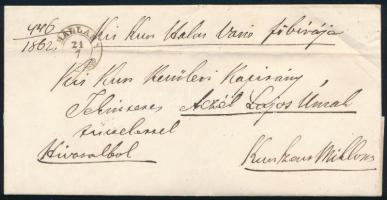 446
1862
21
7
Kis Kun Halas Város főbírája
Kis Kun Kerületi Kapitány
Tekintetes Aczél Lajos Úrnak
tisztelettel
Hivatalból